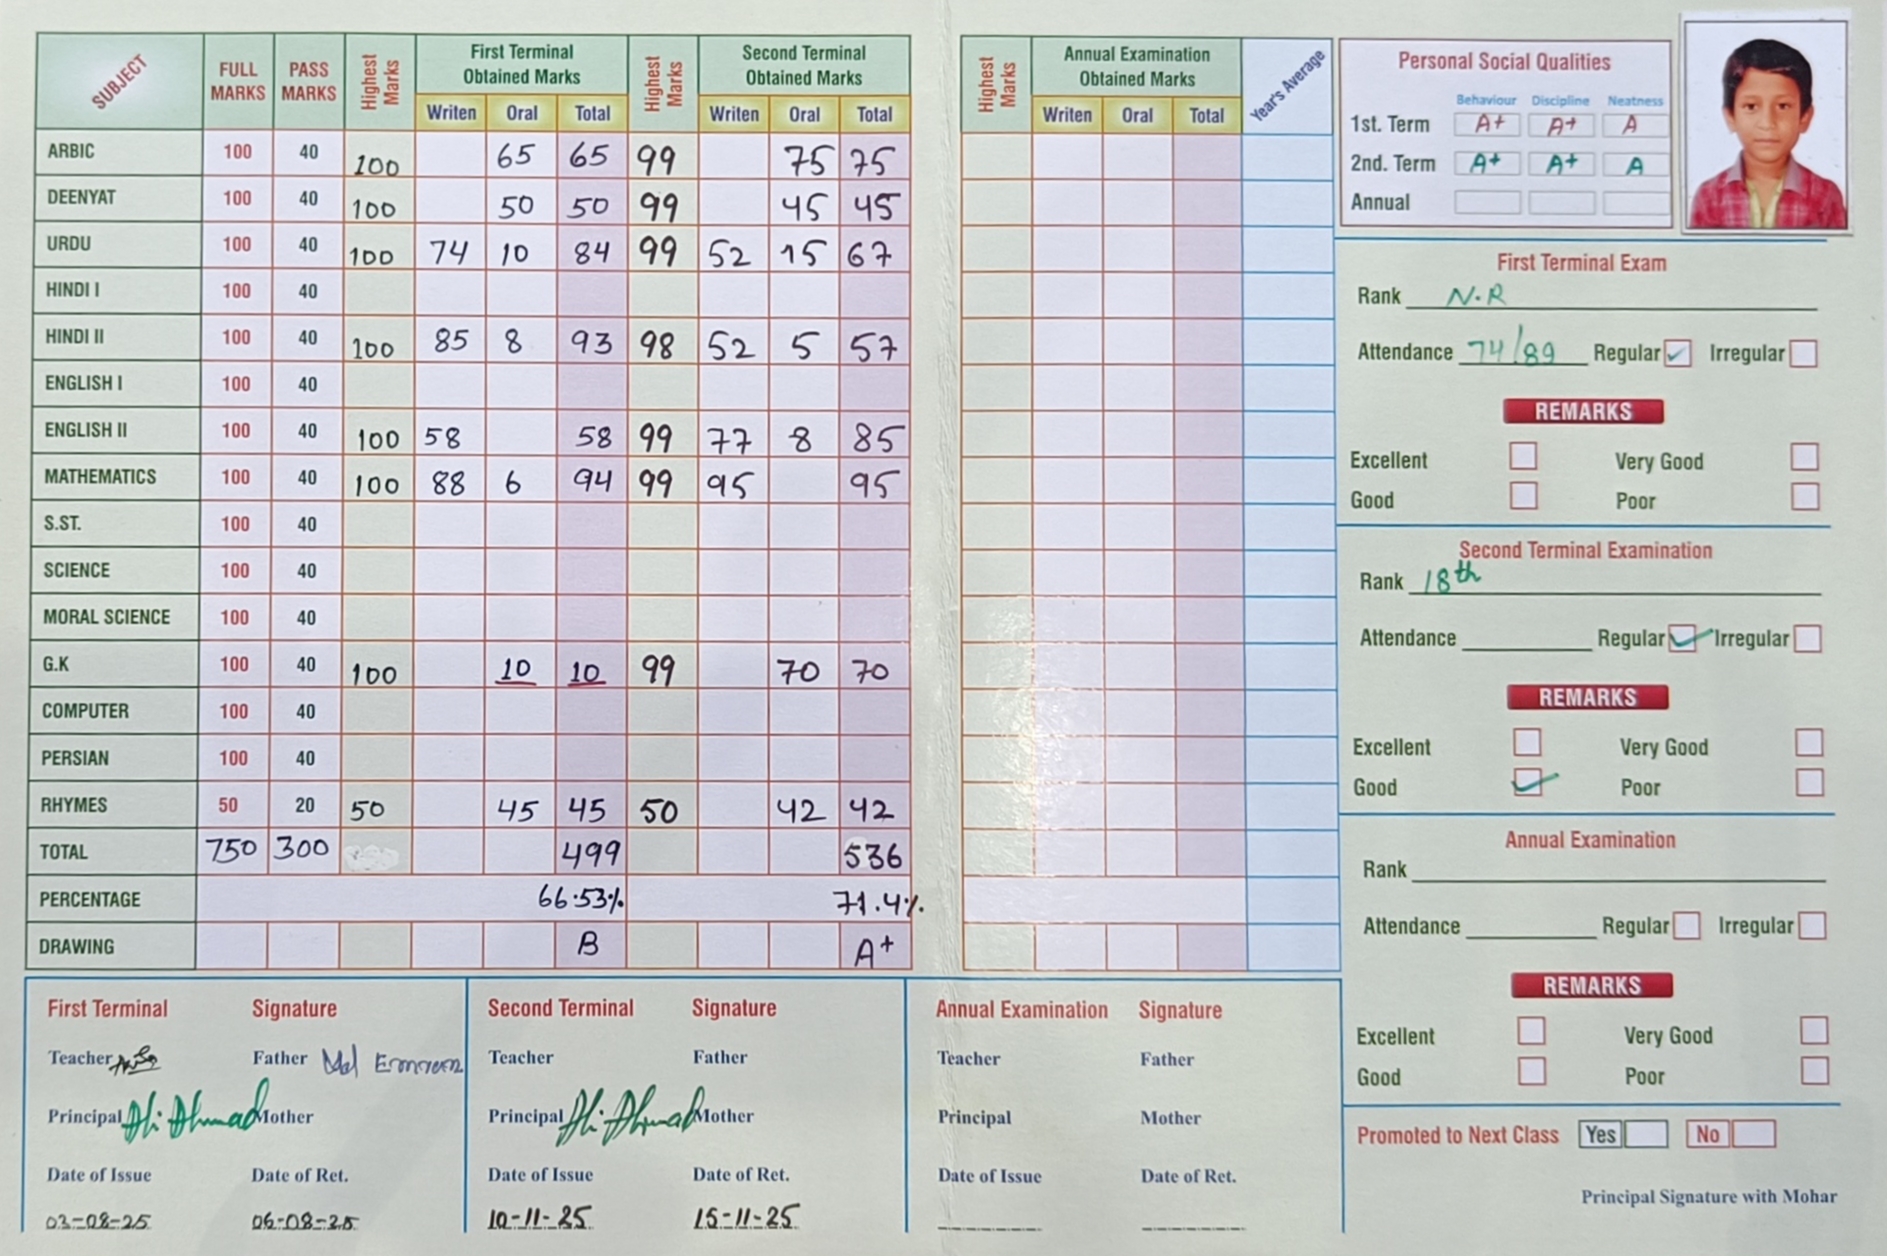 SUBJECT FULL MARKS PASS MARKS Highest Marks First Terminal Obtained Marks Highest Marks Second Terminal Obtained Marks
Writen Oral Total Writen Oral Total
ARBIC 100 40 100 65 65 99 75 75
DEENYAT 100 40 100 50 50 99 45 45
URDU 100 40 100 74 10 84 99 52 15 67
HINDI I 100 40
HINDI II 100 40 100 85 8 93 98 52 5 57
ENGLISH I 100 40
ENGLISH II 100 40 100 58 58 99 77 8 85
MATHEMATICS 100 40 100 88 6 94 99 95 95
S.ST. 100 40
SCIENCE 100 40
MORAL SCIENCE 100 40
G.K 100 40 100 10 10 99 70 70
COMPUTER 100 40
PERSIAN 100 40
RHYMES 50 20 50 45 45 50 42 42
TOTAL 750 300 499 536
PERCENTAGE 66.53% 71.4%
DRAWING B A+
Highest Marks Annual Examination Obtained Marks Year's Average
Writen Oral Total
Personal Social Qualities
Behaviour Discipline Neatness
1st. Term A+ A+ A
2nd. Term A+ A+ A
Annual
First Terminal Exam
Rank N.R
Attendance 74/89 Regular ✓ Irregular
REMARKS
Excellent Very Good
Good Poor
Second Terminal Examination
Rank 18th
Attendance Regular ✓ Irregular
REMARKS
Excellent Very Good
Good ✓ Poor
Annual Examination
Rank
Attendance Regular Irregular
REMARKS
Excellent Very Good
Good Poor
Promoted to Next Class Yes No
Principal Signature with Mohar
First Terminal Signature
Teacher Father Md
Principal Ali Ahmad Mother
Date of Issue Date of Ret.
03-08-25 06-08-25
Second Terminal Signature
Teacher Father
Principal Ali Ahmad Mother
Date of Issue Date of Ret.
10-11-25 15-11-25
Annual Examination Signature
Teacher Father
Principal Mother
Date of Issue Date of Ret.